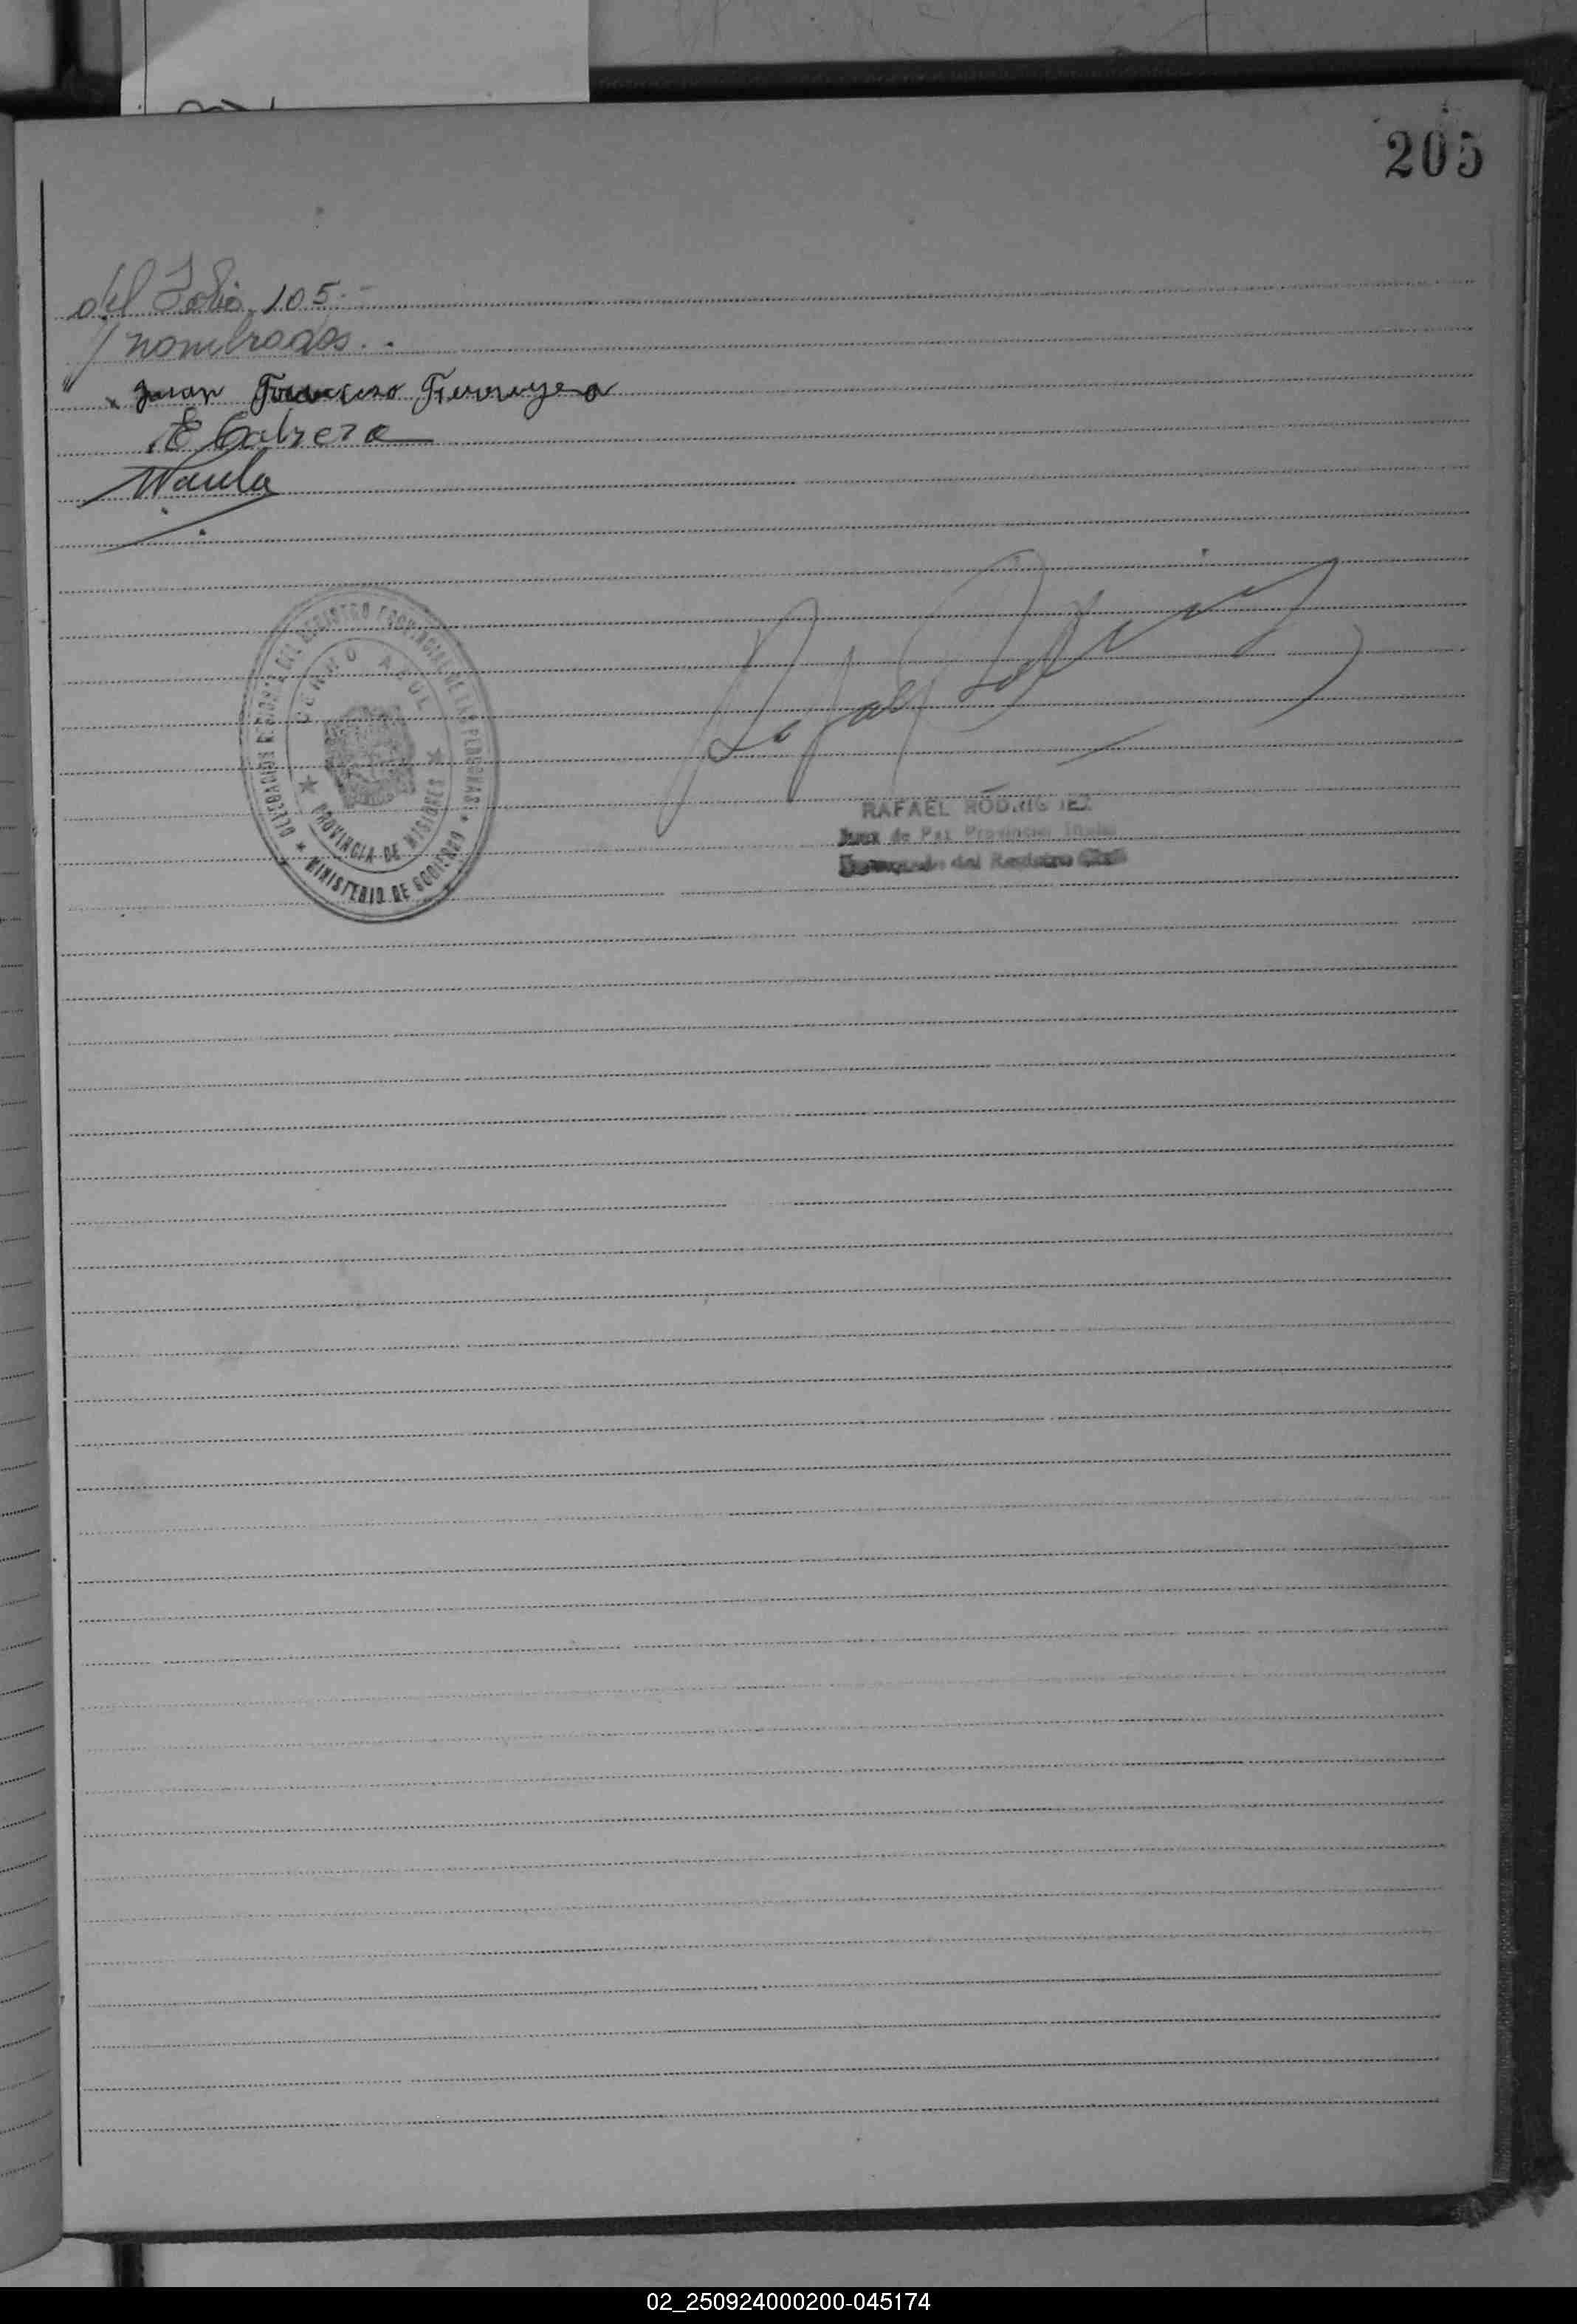 205
del Folio 105.-
nombrados..
x Juan Francisco Ferreyra
E Cabrera
DELEGACION DEL REGISTRO PROVINCIAL DE LAS PERSONAS
CERRO AZUL
PROVINCIA DE MISIONES
MINISTERIO DE GOBIERNO
Rafael Rodriguez
RAFAEL RODRIGUEZ
Juez de Paz Provincial Titular
Encargado del Registro Civil
02_250924000200-045174